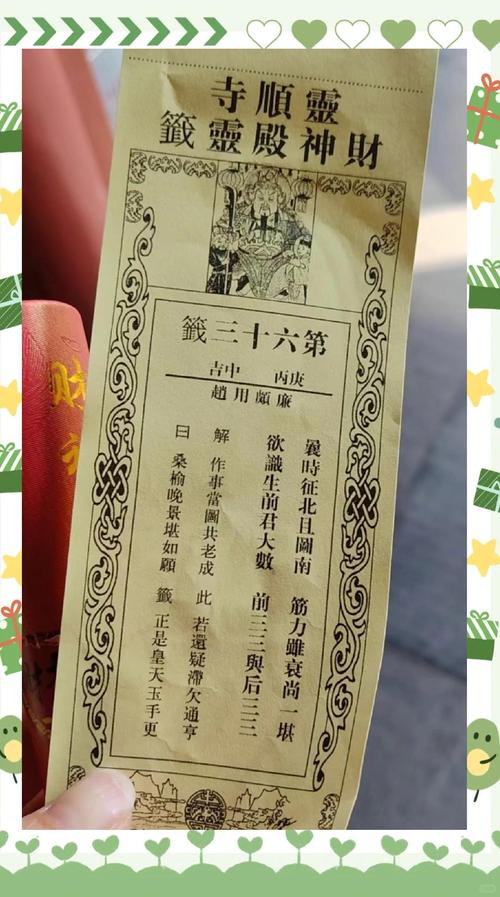 靈順寺
財神殿靈籤
第六十三籤
庚丙 中吉
廉頗用趙
曩時征北且圖南 筋力雖衰尚一堪
欲識生前君大數 前三三與后三三
解 作事當圖共老成 此 若還疑滯欠通亨
曰 桑榆晚景堪如願 籤 正是皇天玉手更